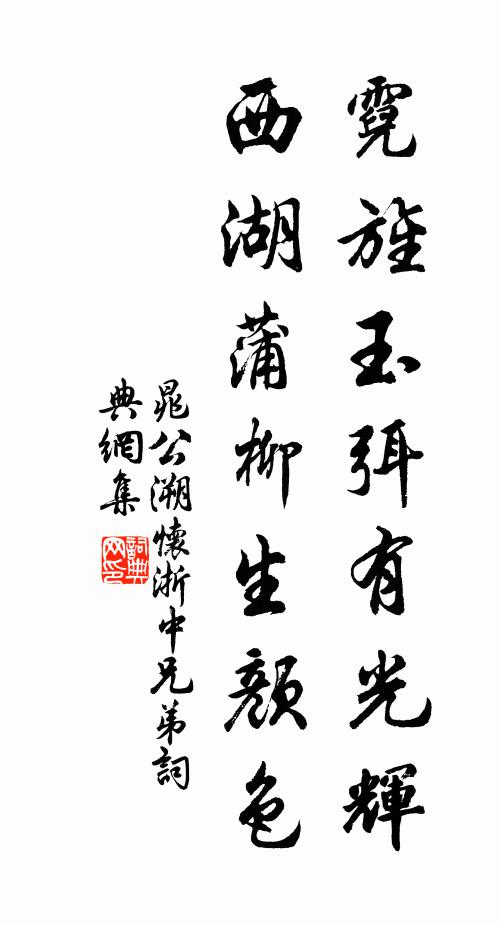 霓旌玉弭有光輝
西湖蒲柳生顏色
晁公溯懷浙中兄弟詞
典網集
詞典網印